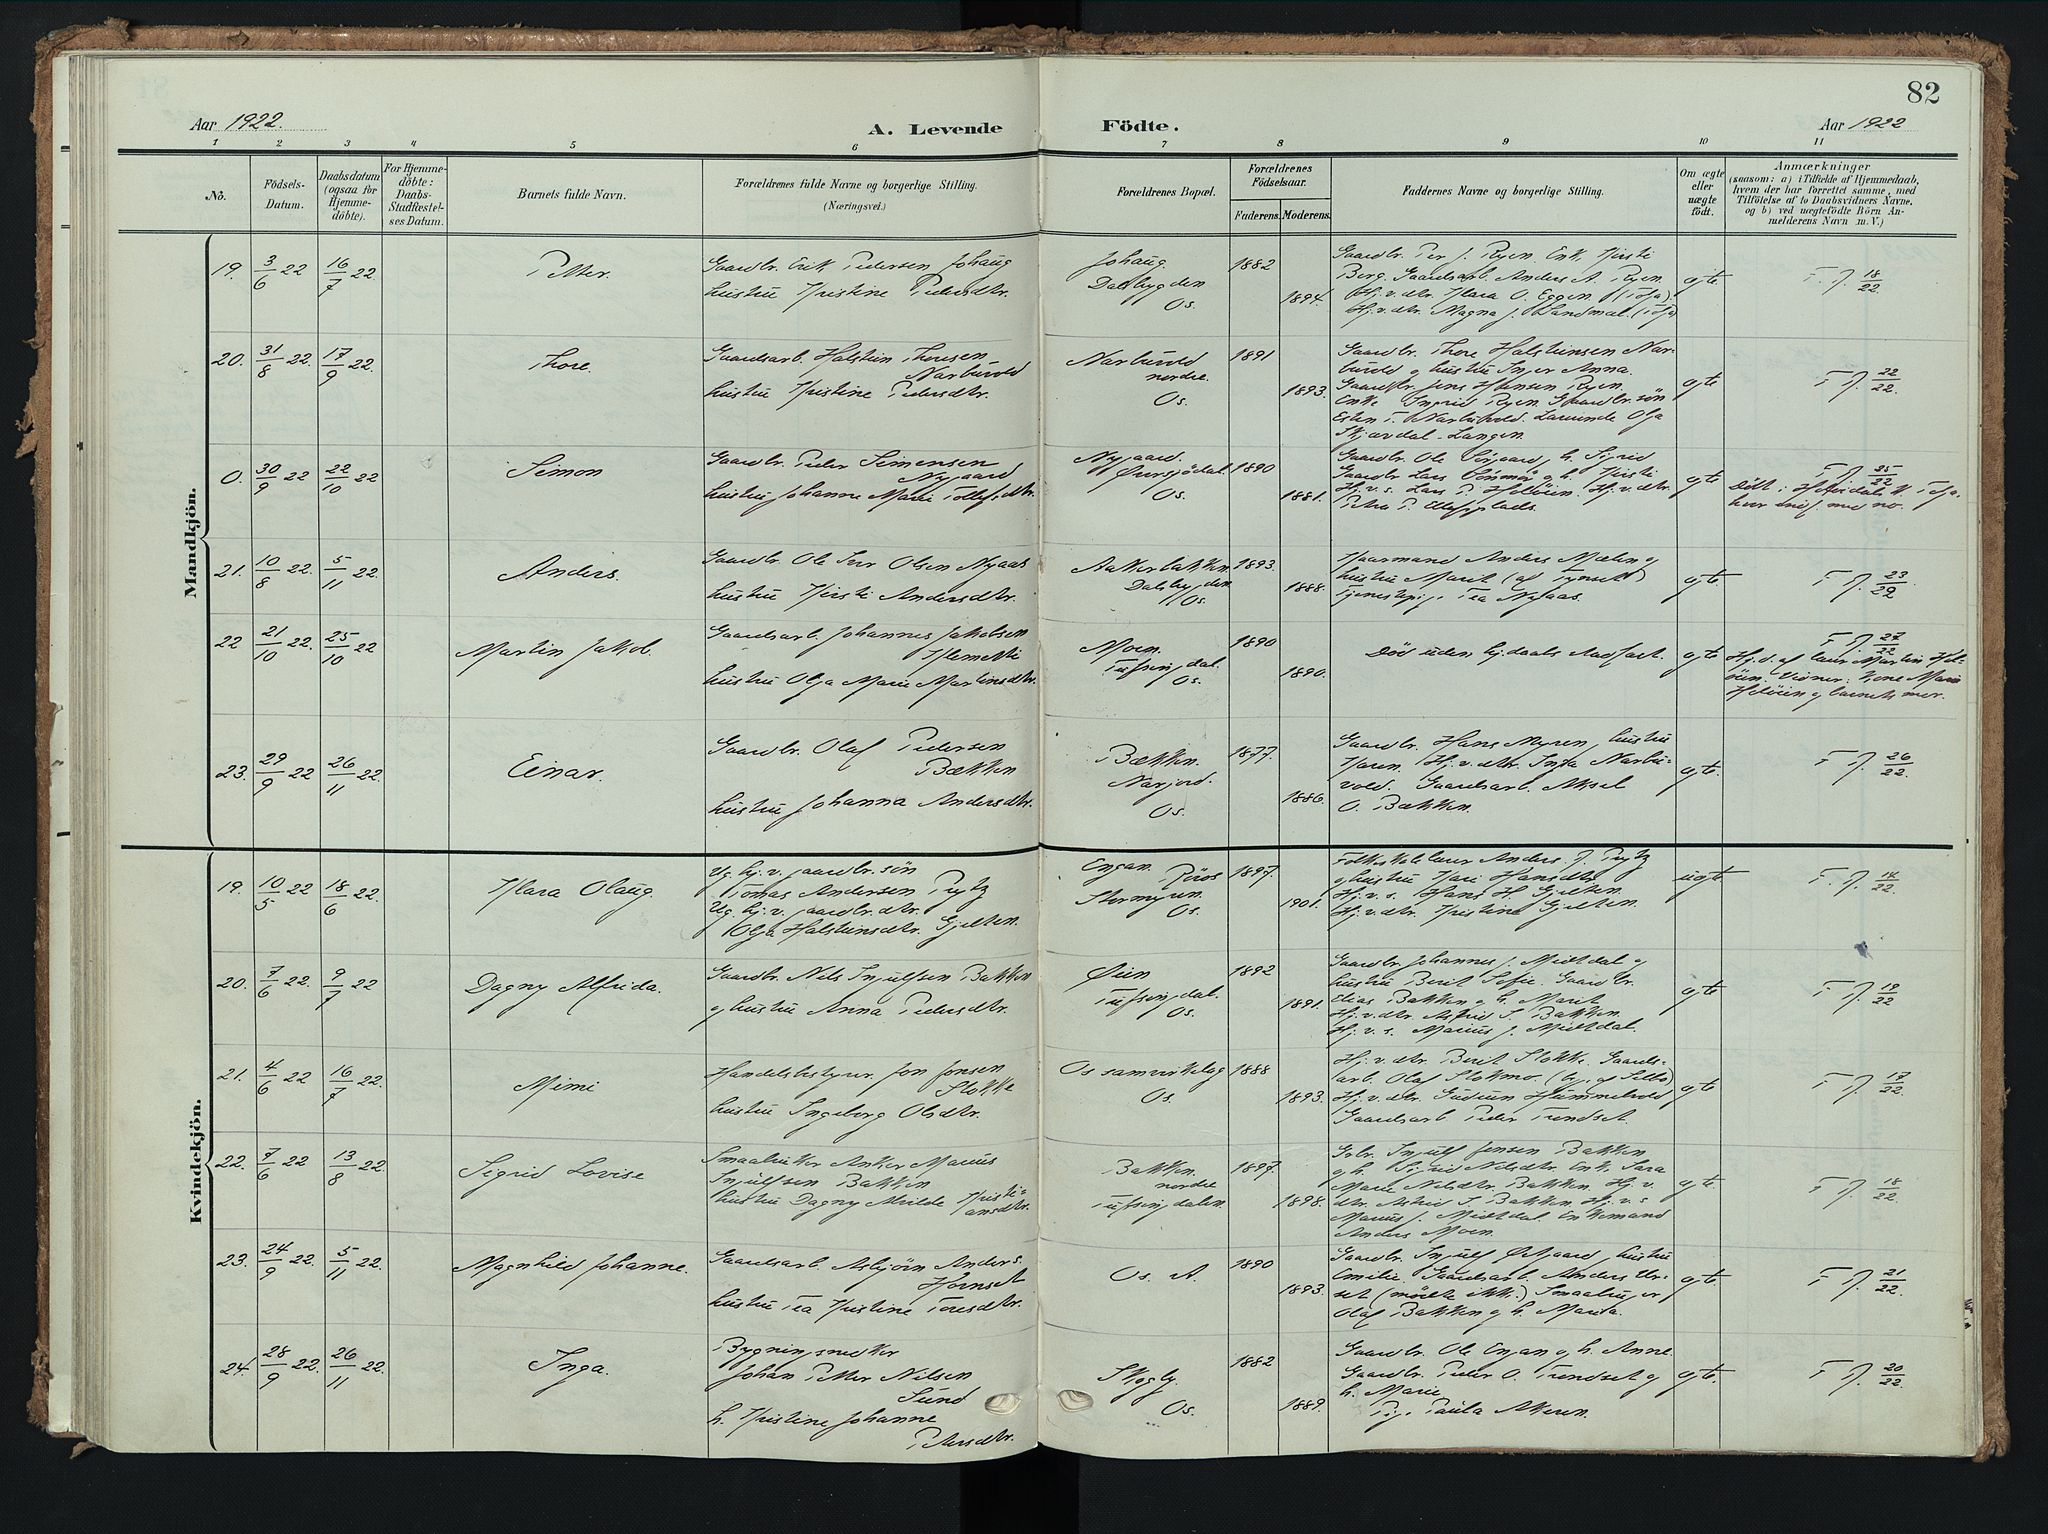 82
Aar 1922.
A. Levende Födte.
Aar 1922
1 2 3 4 5 6 7 8 9 10 11
No.
Födsels-
Datum.
Daabsdatum
(ogsaa for
Hjemme-
döbte).
For Hjemme-
döbte:
Daabs-
Stadfæstel-
ses Datum.
Barnets fulde Navn.
Forældrenes fulde Navne og borgerlige Stilling.
(Næringsvei.)
Forældrenes Bopæl.
Forældrenes
Födselsaar.
Faderens.
Moderens.
Faddernes Navne og borgerlige Stilling.
Om ægte
eller
uægte
födt.
Anmærkninger
(saasom: a) i Tilfælde af Hjemmedaab,
hvem der har forrettet samme, med
Tilföielse af to Daabsvidners Navne,
og b) ved uægtefödte Börn An-
melderens Navn m. V.)
Mandkjön.
19. 3/6 22 16/7 22 Petter.
Gaardbr. Erik Pedersen Johaug
hustru Kristine Pedersdtr.
Johaug.
Dalsbygden
Os.
1882
1894.
Gaardbr. Per J. Ryen. Enk. Kirsti
Berg. Gaardsarb. Anders A. Ryen.
Hj.v.dtr. Klara O. Eggen (Tolga).
Hj.v.dtr. Magna J. Sandmæl. (Tolga)
egte
F. J. 18/22.
20. 31/8 22. 17/9 22. Thore.
Gaardsarb. Halstein Thoresen
Narbuvold
hustru Kristine Pedersdtr.
Narbuvold
nordre.
Os.
1891
1893.
Gaardbr. Thore Halsteinsen Nar-
buvold og hustru Inger Anna.
Gaardbr. Jens Hansen Ryen.
Enke Ingrid Ryen. Gaardbr. sön
Esten T. Narbuvold. Lærerinde Olga
Skjærdal-Langen.
egte
F J. 22/22.
0. 30/9 22 22/10 22 Simon
Gaardbr. Peder Simensen
Nygaard
hustru Johanne Marie Tollefsdtr.
Nygaard.
Översjödal.
Os.
1890
1881.
Gaardbr. Ole Sörgaard og h. Sigrid
Gaardbr Lars h. Kirsti
Hj.v.s. Lars P. Hj.v.dtr.
Petra P.
egte
F J. 25/22
Döbt i K. Tolga.
hvor indf. med no.
21. 10/8 22. 5/11 22. Anders.
Gaardbr. Ole Iver Olsen Nyaas
hustru Kirsti Andersdtr.
Aakerbakken
Dalsbygden
Os.
1893.
1888.
Anders Mælen og
hustru Marit (af Tynset)
Tjenestepige Tea Nyaas.
egte.
F J. 23/22
22 21/10 22. 25/10 22 Martin Jakob.
Gaardsarb. Johannes Jakobsen
Klemeti
hustru Olga Marie Martinsdtr.
Moen.
Tufsingdal.
Os.
1890
1890.
Död uden hj.daabs stadfæst.
egte
F J. 27/22
Hj.d. af lærer Martin Hol-
öien. Vidner: Kone Marie
Holöien og barnets mor.
23. 29/9 22 26/11 22. Einar.
Gaardbr. Olaf Pedersen
Bækken
hustru Johanna Andersdtr.
Bækken.
Narjord.
Os.
1877.
1886.
Gaardbr. Hans Myren, hustru
Karen. Hj.v.dtr. Inga Narbu-
vold. Gaardsarb. Aksel
O. Bækken.
egte.
F J. 26/22.
Kvindekjön.
19. 10/5 22 18/6 22. Klara Olaug.
Ug. hj.v. gaardbr.sön
Tomas Andersen Prytz
Ug. hj.v. gaardbr.dtr.
Olga Halsteinsdtr. Gjelten.
Engan. Röros
Stormyren.
Os.
1897.
1901.
Folkeskolelærer Anders J. Prytz
og hustru Kari Hansdtr
Hj.v.s. Hans H. Gjelten.
Hj.v.dtr. Kristine Gjelten.
uegte.
F. J. 14/22.
20. 7/6 22. 9/7 22 Dagny Alfrida.
Gaardbr. Nils Ingulfsen Bakken
og hustru Anna Pedersdtr.
Öien
Tufsingdal.
Os.
1892
1891.
Gaardbr. Johannes J. Midtdal og
hustru Berit Sofie. Gaardbr.
Elias Bakken og h. Marit
Hj.v.dtr. Astrid I. Bakken.
Hj.v.s. Marius J. Midtdal.
egte
F J. 19/22
21. 4/6 22 16/7 22. Mimi
Handelsbestyrer Jon Jonsen
Stokke
hustru Ingeborg Olsdtr.
Os samvirkelag
Os.
1888
1893.
Hj.v.dtr. Berit Stokke. Gaards-
arb. Olaf Stokmo. (beg. af Selbu)
Hj.v.dtr. Gudrun Hummelvold
Gaardsarb Peder Trondset.
egte
F J. 17/22
22. 7/6 22 13/8 22. Sigrid Lovise
Smaabruker Anker Marius
Ingulfsen Bakken
hustru Dagny Alvilde Kristi-
ansdtr.
Bakken.
nordre
Tufsingdalen.
1897.
1898.
Gbr. Ingulf Jonsen Bakken
og h. Sigrid Nilsdtr. Enk. Sara
Marie Nilsdtr. Bakken. Hj.v.
dtr. Astrid I. Bakken. Hj.v.s
Marius J. Midtdal. Enkemand
Anders Moen.
egte
F J. 18/22.
23. 24/9 22. 5/11 22. Magnhild Johanne.
Gaardsarb. Asbjörn Anders.
Hornset
hustru Tea Kristine Toresdtr.
Os. A.
1890
1893.
Gaardbr. Ingulf Öigaard, hustru
Emilie. Gaardsarb. Anders Ur-
set (mödte ikke.) Smaabruger
Olaf Bakken og h. Marta.
egte.
F J. 21/22.
24. 28/9 22. 26/11 22. Inga.
Bygningssnedker
Johan Petter Nilsen
Sund
h. Kristine Johanne
Petersdtr.
Skogly.
Os.
1882
1889.
Gaardbr. Ole Engan og h. Anne.
Gaardbr. Peder O. Trondset og
h. Marie
Pige Paula Akeren.
egte.
F J. 20/22.